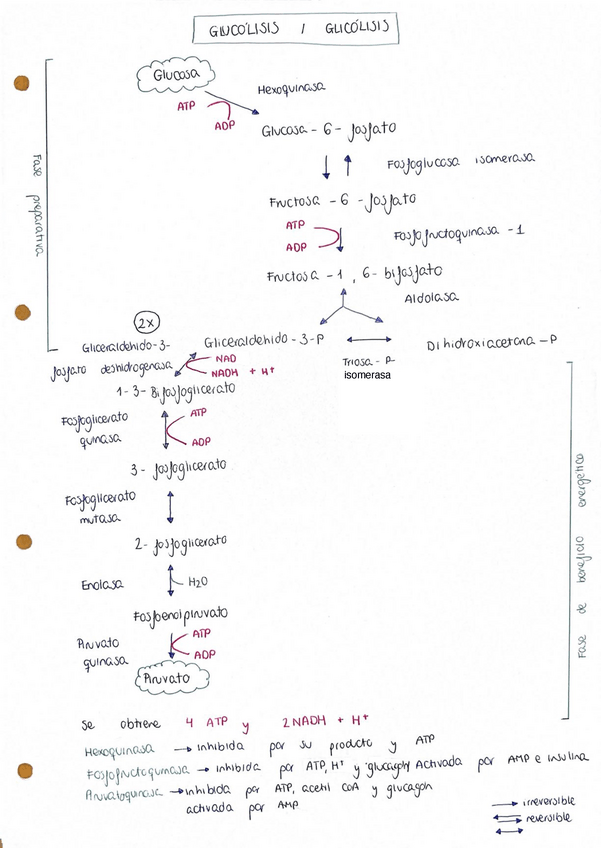 GLUCÓLISIS / GLICÓLISIS
Glucosa
Hexoquinasa
ATP
ADP
Glucosa - 6 - fosfato
Fosfoglucosa isomerasa
Fructosa - 6 - fosfato
ATP
ADP
Fosfofructoquinasa - 1
Fructosa - 1, 6 - bifosfato
Aldolasa
Fase preparativa
2x
Gliceraldehido - 3 - P
Dihidroxiacetona - P
Triosa - P-
isomerasa
Gliceraldehido - 3-
fosfato deshidrogenasa
NAD
NADH + H+
1 - 3 - Bifosfoglicerato
Fosfoglicerato
quinasa
ATP
ADP
3 - fosfoglicerato
Fosfoglicerato
mutasa
2 - fosfoglicerato
Enolasa
H2O
Fosfoenolpiruvato
Piruvato
quinasa
ATP
ADP
Piruvato
Fase de beneficio energético
Se obtiene 4 ATP y 2 NADH + H+
Hexoquinasa → inhibida por su producto y ATP
Fosfofructoquinasa → inhibida por ATP, H+ y glucagón Activada por AMP e insulina
Piruvatoquinasa → inhibida por ATP, acetil CoA y glucagon
activada por AMP
→ irreversible
⇄ reversible
↔